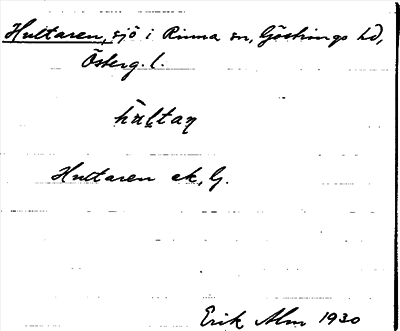 Hultaren, sjö i Rinna sn, Göstrings hd,
Österg. l.
hùltaꞃ
Hultaren ek, G.
Erik Alm 1930